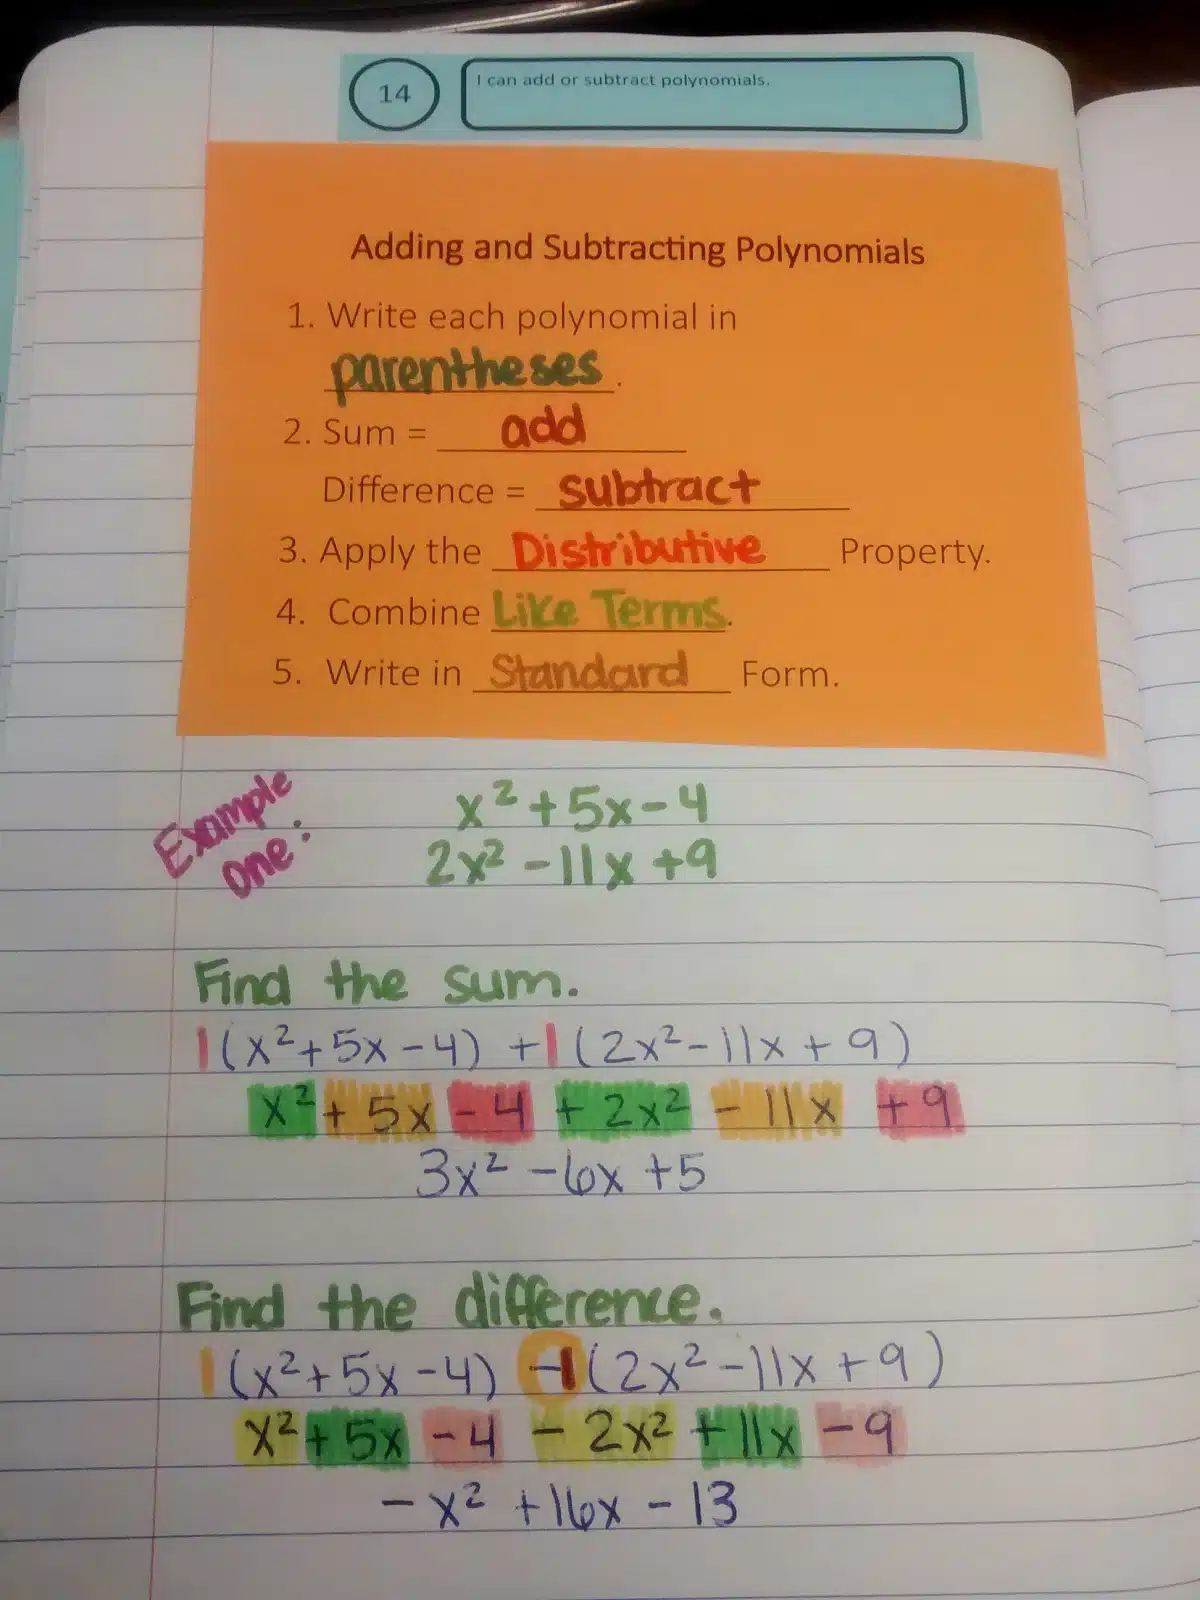 14
I can add or subtract polynomials.
Adding and Subtracting Polynomials
1. Write each polynomial in
parentheses.
2. Sum = add
Difference = subtract
3. Apply the Distributive Property.
4. Combine Like Terms.
5. Write in Standard Form.
Example
One:
x² + 5x - 4
2x² - 11x + 9
Find the sum.
1(x² + 5x - 4) + 1(2x² - 11x + 9)
x² + 5x - 4 + 2x² - 11x + 9
3x² - 6x + 5
Find the difference.
1(x² + 5x - 4) - 1(2x² - 11x + 9)
x² + 5x - 4 - 2x² + 11x - 9
- x² + 16x - 13